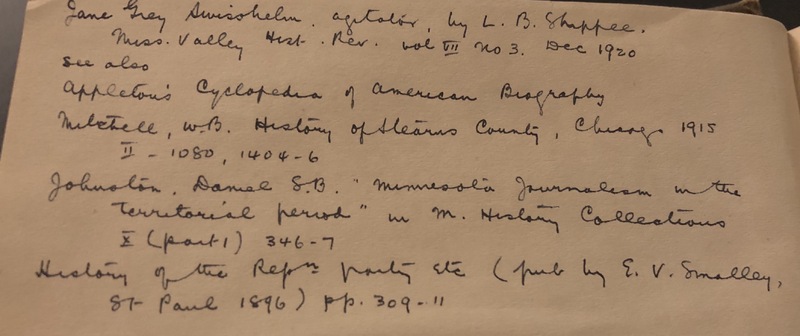 Jane Grey Swisshelm. agitator, by L. B. Shippee.
Miss. Valley Hist. Rev. vol VII no 3. Dec 1920
see also
Appleton's Cyclopedia of American Biography
Mitchell, W.B. History of Stearns County, Chicago 1915
II - 1080, 1404-6
Johnston, Daniel S.B. "Minnesota Journalism in the
Territorial period" in M. History Collections
X (part 1) 346-7
History of the Repn party etc (pub by E. V. Smalley,
St Paul 1896) pp. 309-11